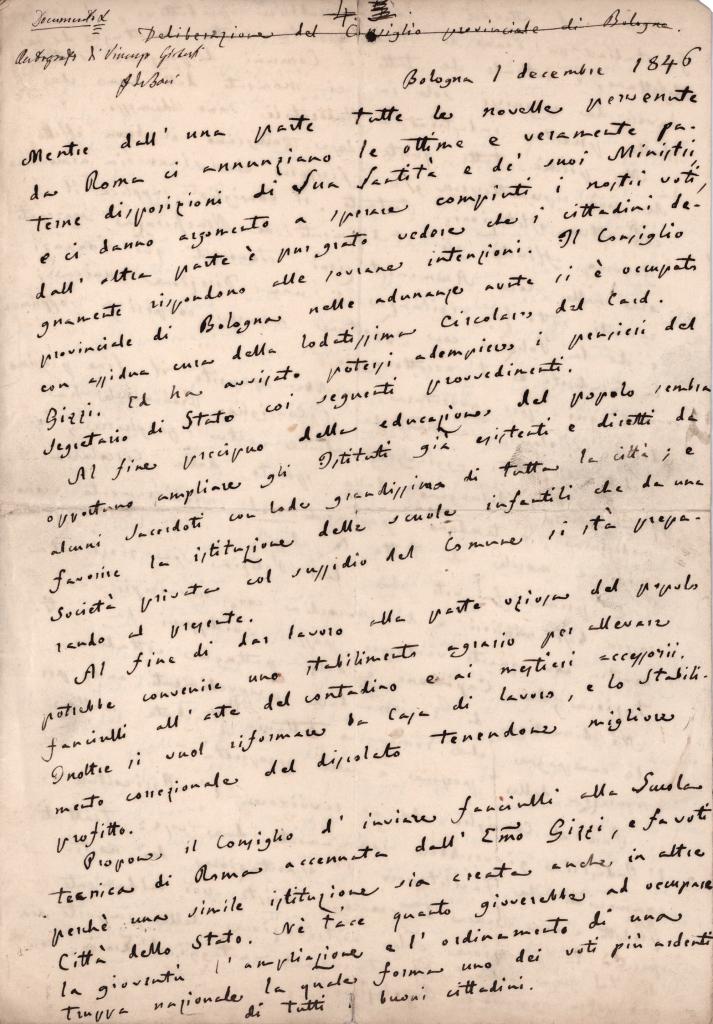 4.
Documento
Deliberazione del Consiglio provinciale di Bologna.
Autografo di
Bologna 1 decembre 1846
Mentre dall' una parte tutte le novelle pervenute
da Roma ci annunziano le ottime e veramente pa-
terne disposizioni di Sua Santità e de' suoi Ministri,
e ci danno argomento a sperare compiuti i nostri voti,
dall' altra parte è pur grato vedere che i cittadini de-
gnamente rispondono alle sovrane intenzioni. Il Consiglio
provinciale di Bologna nelle adunanze avute si è occupato
con assidua cura della lodatissima Circolare del Card.
Gizzi. Ed ha avvisato potersi adempiere i pensieri del
Segretario di Stato coi seguenti provvedimenti.
Al fine precipuo della educazione del popolo sembra
opportuno ampliare gli Istituti già esistenti e diretti da
alcuni sacerdoti con lode grandissima di tutta la città; e
favorire la istituzione delle scuole infantili che da una
Società privata col sussidio del Comune si stà prepa-
rando al presente.
Al fine di dar lavoro alla parte oziosa del popolo
potrebbe convenire uno stabilimento agrario per allevare
fanciulli all' arte del contadino e ai mestieri accessorii.
Inoltre si vuol riformare la Casa di lavoro, e lo Stabili-
mento correzionale del discolato tenendone migliore
profitto.
Propone il Consiglio d' inviare fanciulli alla Scuola
tecnica di Roma accennata dall' Emo Gizzi, e fa voti
perchè una simile istituzione sia creata anche in altre
Città dello Stato. Nè tace quanto gioverebbe ad occupare
la gioventù l' ampliazione e l' ordinamento di una
truppa nazionale la quale forma uno dei voti più ardenti
di tutti i buoni cittadini.